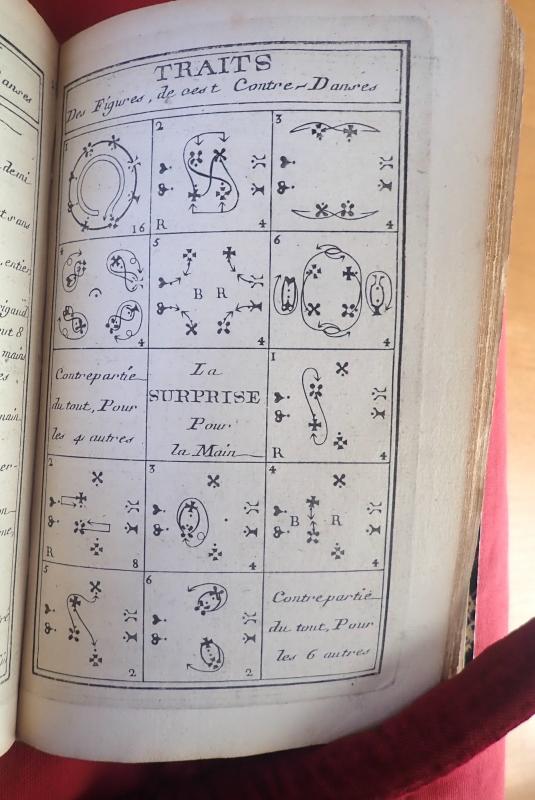 TRAITS
Des Figures, de cest Contre-Danses
1
16
2
R
4
3
4
4
4
5
B R
4
6
4
Contrepartie
du tout, Pour
les 4 autres
La
SURPRISE
Pour
la Main
1
R
4
2
R
8
3
4
4
B R
4
5
2
6
2
Contrepartie
du tout, Pour
les 6 autres
anses
demi
entier
rigaud
mains
main